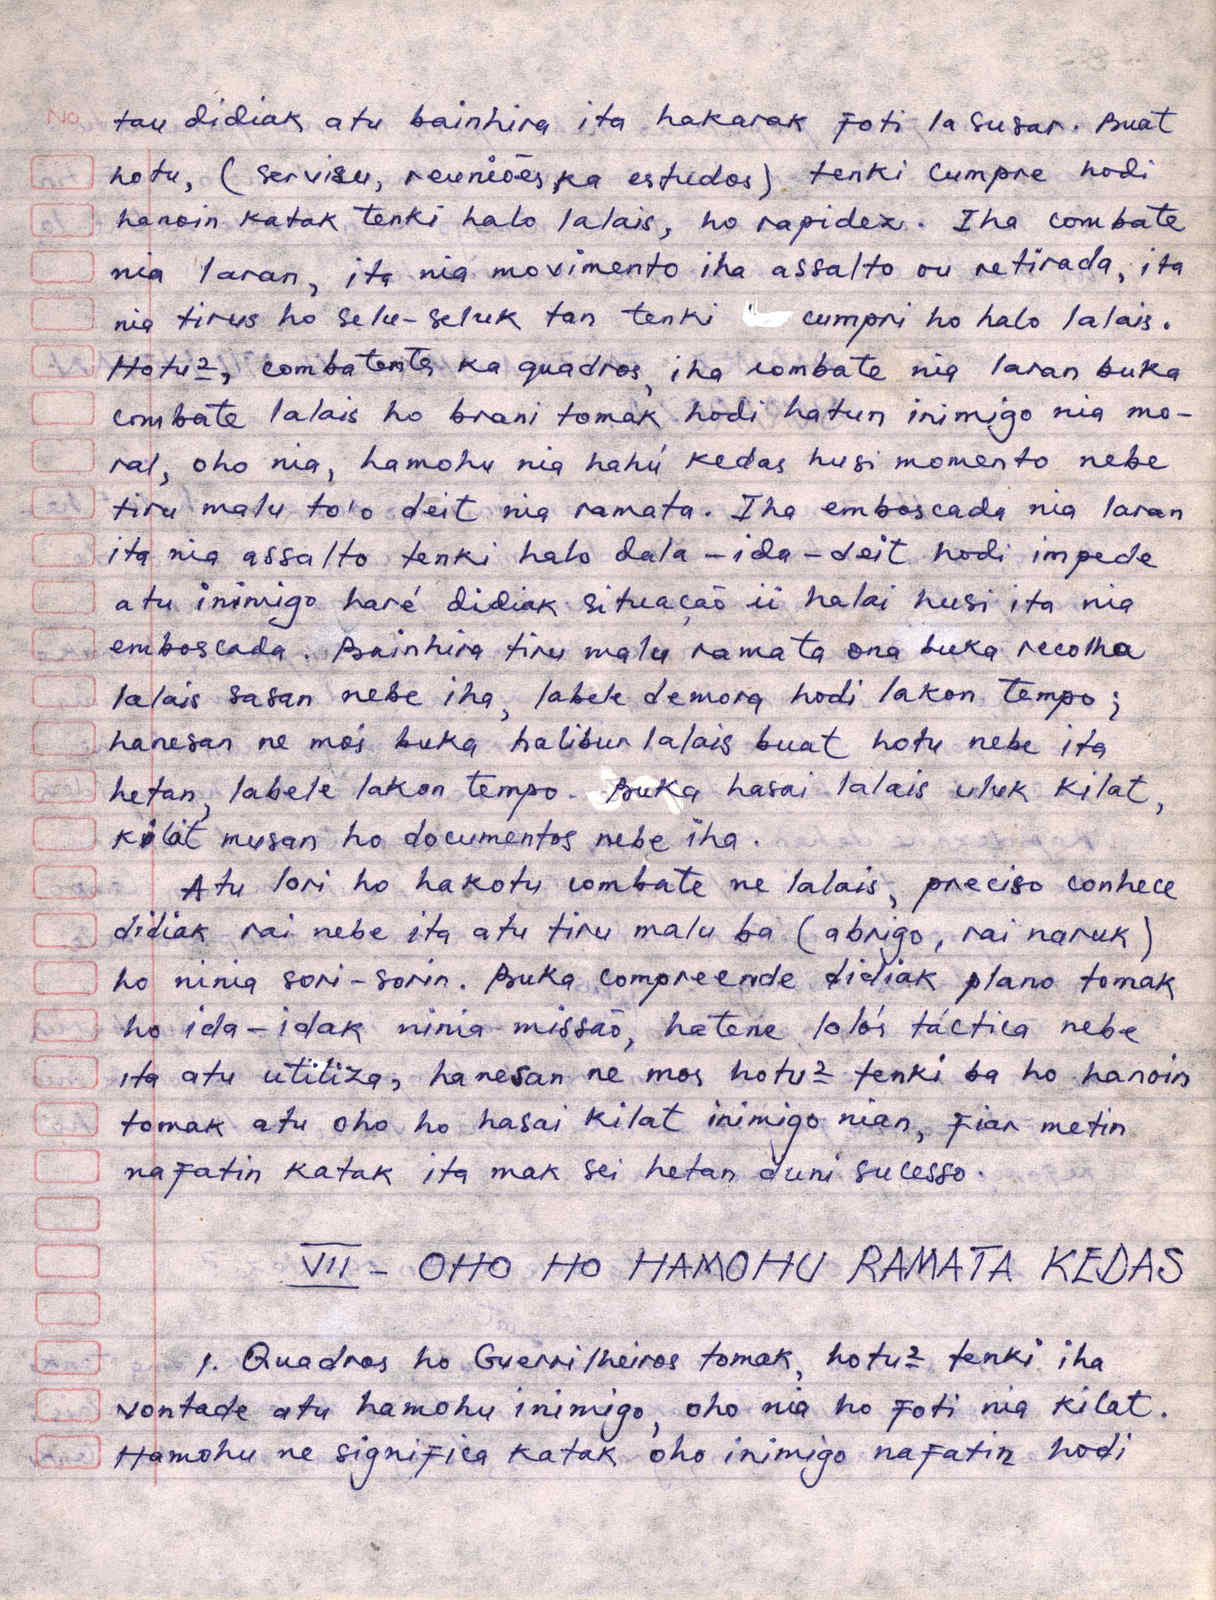 No
tau didiak atu bainhira ita hakarak foti la susar. Buat
hotu, (servisu, reuniões, ka estudos) tenki cumpre hodi
hanoin katak tenki halo lalais, ho rapidez. Iha combate
nia laran, ita nia movimento iha assalto ou retirada, ita
nia tirus ho selu-seluk tan tenki cumpri ho halo lalais.
Hotu2, combatentes ka quadros, iha combate nia laran buka
combate lalais ho brani tomak hodi hatun inimigo nia mo-
ral, oho nia, hamohu nia hahú kedas husi momento nebe
tiru malu to'o deit nia ramata. Iha emboscada nia laran
ita nia assalto tenki halo dala-ida-deit hodi impede
atu inimigo haré didiak situação ii halai husi ita nia
emboscada. Bainhira tiru malu ramata ona buka recolha
lalais sasan nebe iha, labele demora hodi lakon tempo;
hanesan ne mós buka halibur lalais buat hotu nebe ita
hetan, labele lakon tempo. Buka hasai lalais uluk kilat,
kilat musan ho documentos nebe iha.
Atu lori ho hakotu combate ne lalais, preciso conhece
didiak rai nebe ita atu tiru malu ba (abrigo, rai naruk)
ho ninia sori-sorin. Buka compreende didiak plano tomak
ho ida-idak ninia missão, hatene lolós táctica nebe
ita atu utiliza, hanesan ne mos hotu2 tenki ba ho hanoin
tomak atu oho ho hasai kilat inimigo nian, fiar metin
nafatin katak ita mak sei hetan duni sucesso.
VII - OHO HO HAMOHU RAMATA KEDAS
1. Quadros ho Guerrilheiros tomak, hotu2 tenki iha
vontade atu hamohu inimigo, oho nia ho foti nia kilat.
Hamohu ne significa katak oho inimigo nafatin hodi